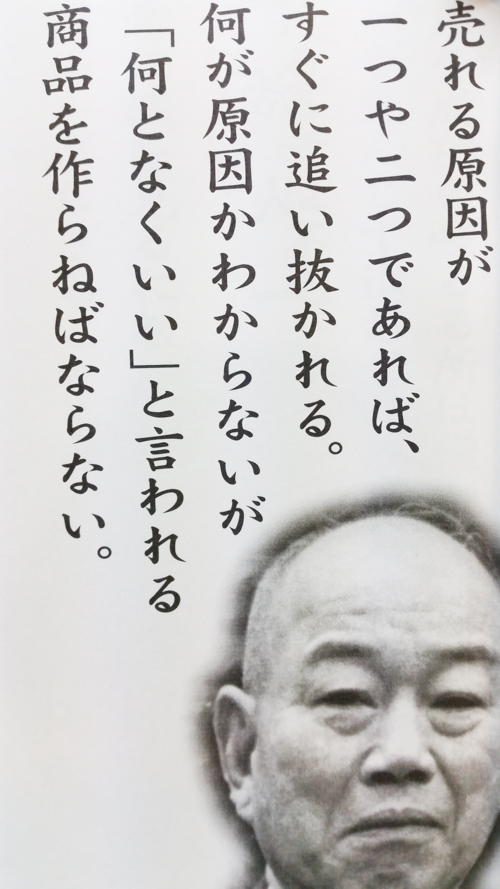 売れる原因が
一つや二つであれば、
すぐに追い抜かれる。
何が原因かわからないが
「何となくいい」と言われる
商品を作らねばならない。